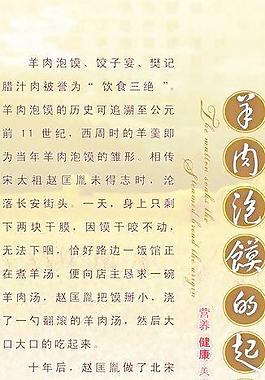 羊肉泡馍、饺子宴、樊记
腊汁肉被誉为“饮食三绝”。
羊肉泡馍的历史可追溯至公元
前11世纪，西周时的羊羹即
为当年羊肉泡馍的雏形。相传
宋太祖赵匡胤未得志时，沦
落长安街头。一天，身上只剩
下两块干膜，因馍干咬不动，
无法下咽，恰好路边一饭馆正
在煮羊汤，便向店主恳求一碗
羊肉汤，赵匡胤把馍掰小，浇
了一勺翻滚的羊肉汤，然后大
口大口的吃起来。
十年后，赵匡胤做了北宋
The mutton soaks the
Steamed bread the origin
羊肉泡馍的起
营养 健康 美